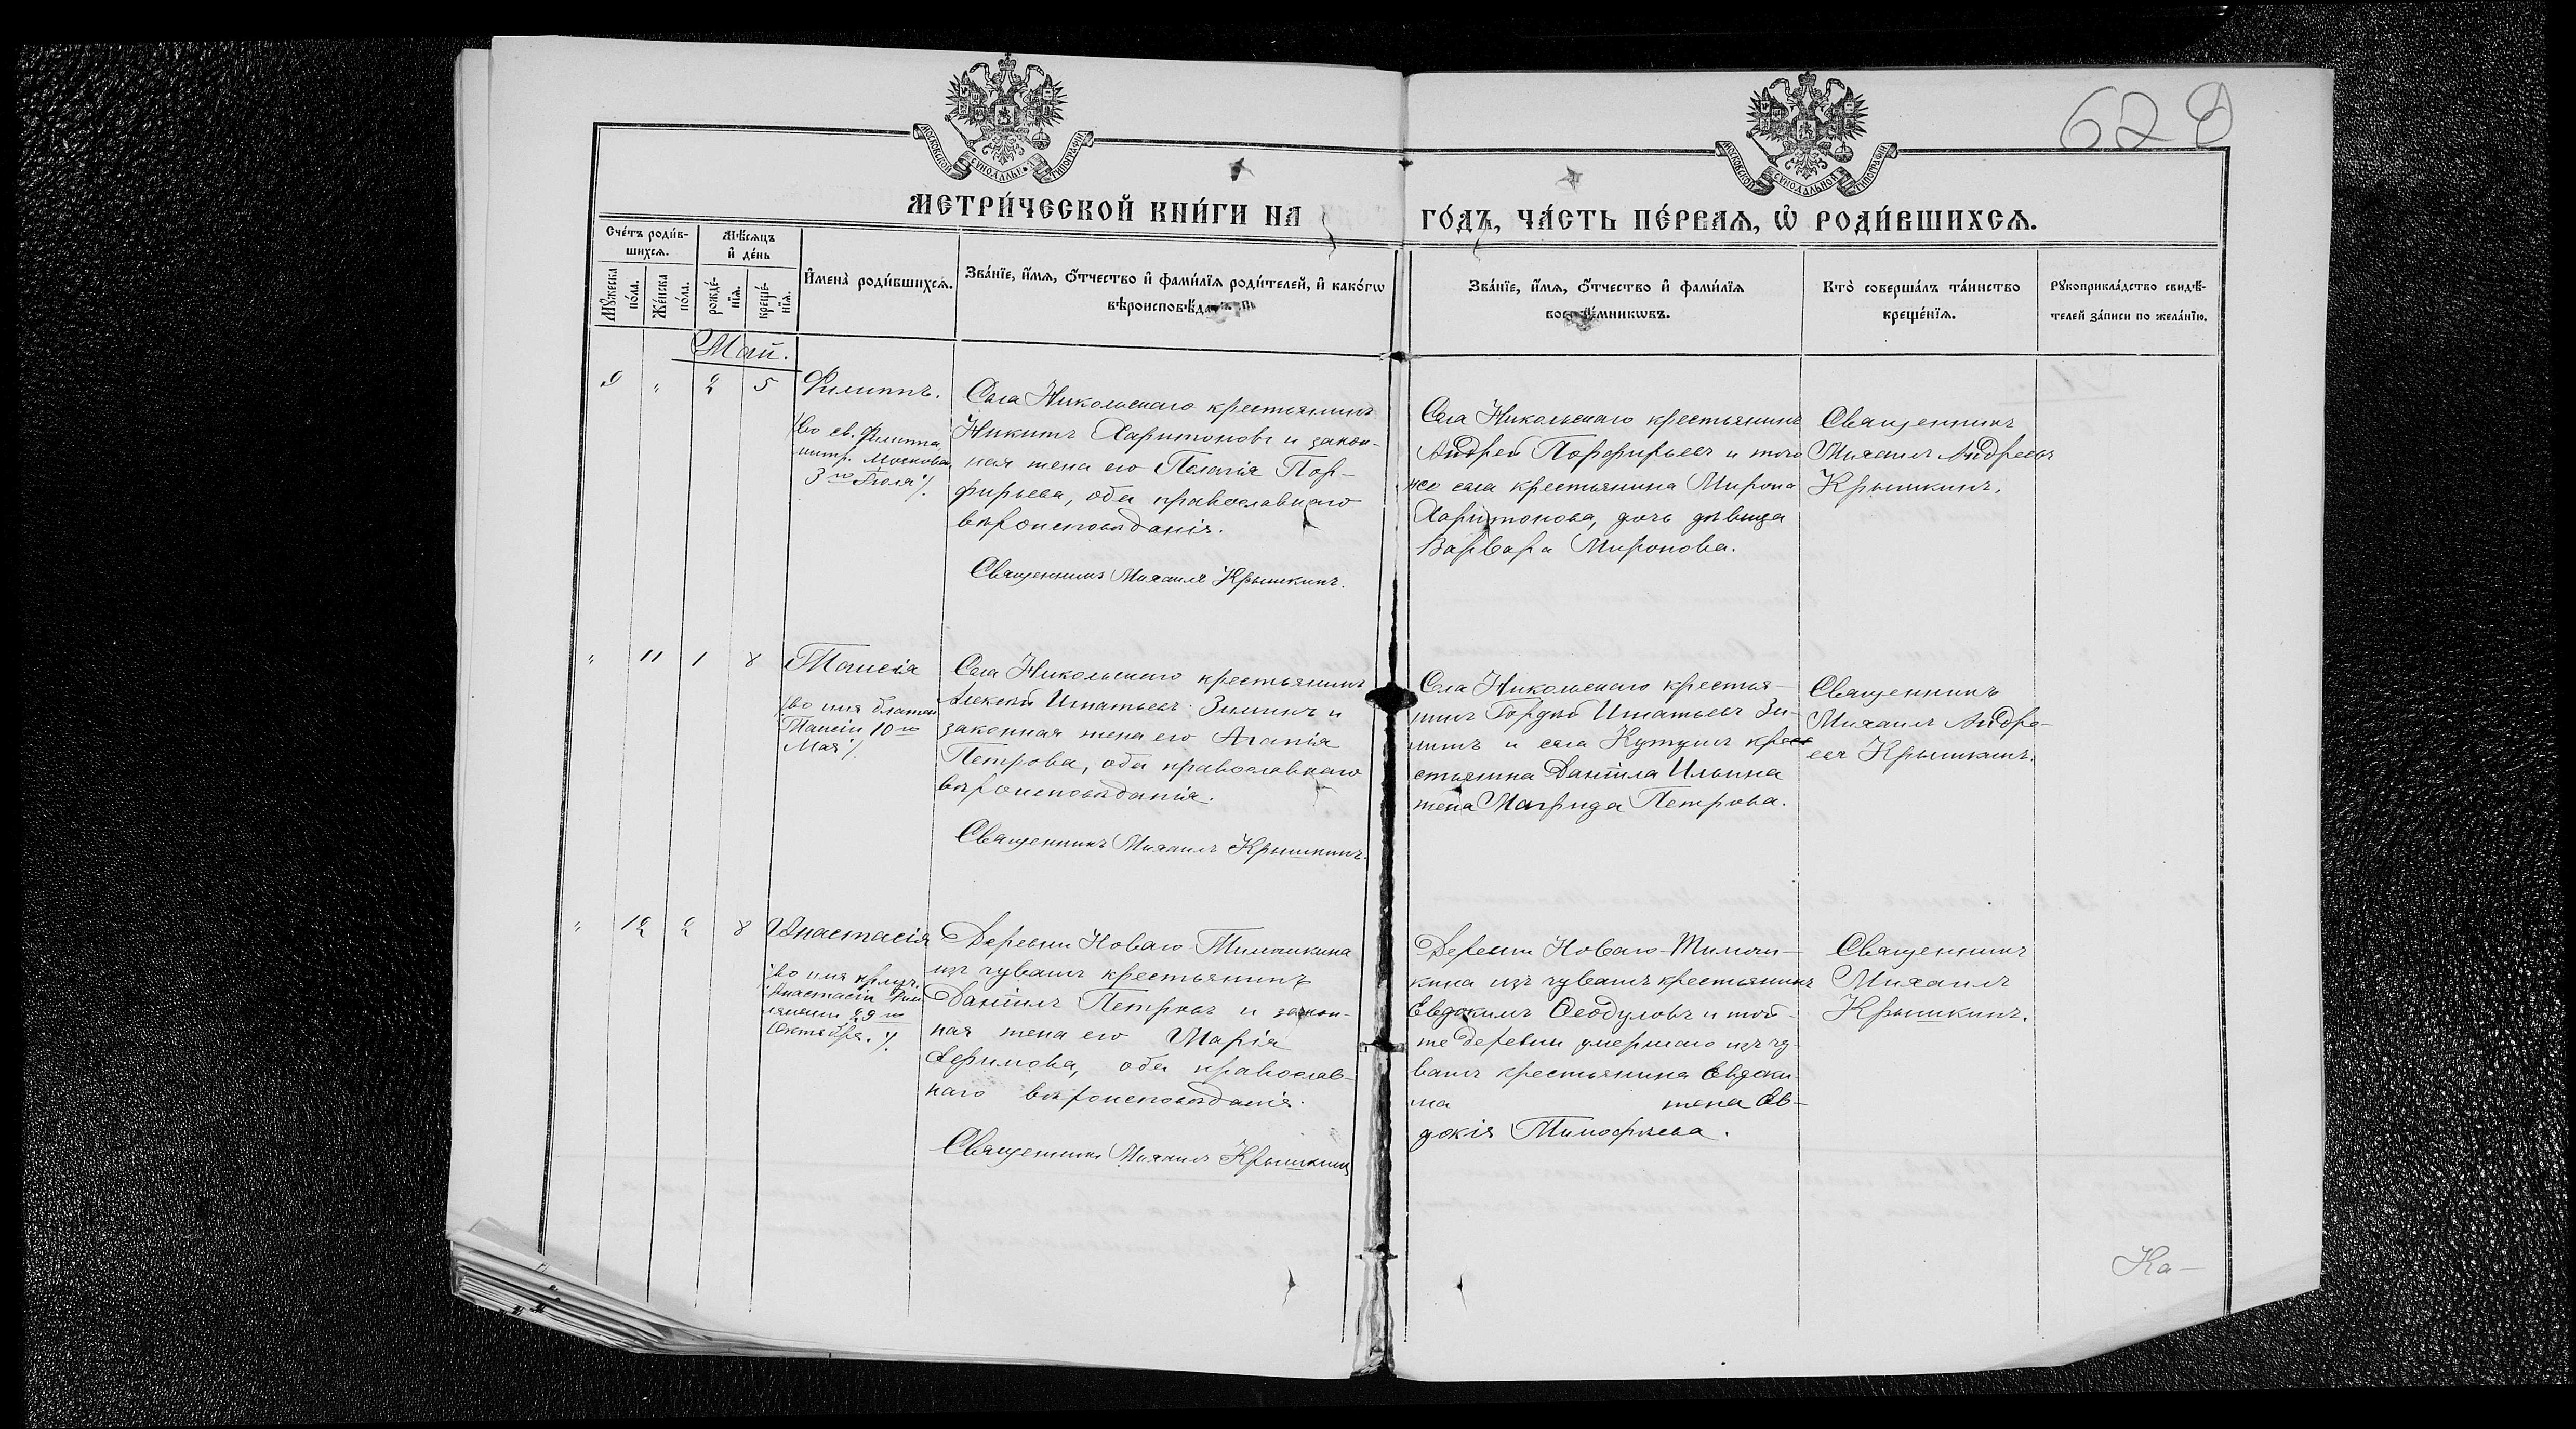 МОСКОВСКОЙ СѴНОДАЛЬН. ТИПОГРАФІИ
МОСКОВСКОЙ СѴНОДАЛЬНОЙ ТИПОГРАФІИ
62
МЕТРИ́ЧЕСКОЙ КНИ́ГИ НА
ГО́ДЪ, ЧА́СТЬ ПЕ́РВАѦ, Ѡ҆ РОДИ́ВШИХСѦ.
Сче́тъ роди́в-
шихсѧ.
Мѣ́сѧцъ
и҆ де́нь
Мꙋ́жеска
по́ла.
Же́нска
по́ла.
рожде́-
нїѧ.
креще́-
нїѧ.
И҆мена̀ роди́вшихсѧ.
Зва́нїе, и҆́мѧ, ѻ҆́тчество и҆ фами́лїѧ роди́телей, и҆ како́гѡ
вѣроисповѣ́да
Зва́нїе, и҆́мѧ, ѻ҆́тчество и҆ фами́лїѧ
вос емникѡвъ.
Кто̀ соверша́лъ та́инство
креще́нїѧ.
Рꙋкоприкла́дство свидѣ́-
телей за́писи по жела́нїю.
Май.
9 " 2 5
Филиппъ.
Во св. Филиппа
митр. Московск.
3го Іюля
Села Никольскаго крестьянинъ
Никита Харитоновъ и закон-
ная жена его Пелагія Пор-
фирьева, оба православнаго
вѣроисповѣданія.
Священникъ Михаилъ Крышкинъ.
Села Никольскаго крестьянинъ
Андрей Порфирьевъ и того
же села крестьянина Мирона
Харитонова, дочь дѣвица
Варвара Миронова.
Священникъ
Михаилъ Андреевъ
Крышкинъ.
" 11 1 8
Таисія
во имя блажен.
Таисіи 10го
Мая
Села Никольскаго крестьянинъ
Алексѣй Игнатьевъ Зиминъ и
законная жена его Агапія
Петрова, оба православнаго
вѣроисповѣданія.
Священникъ Михаилъ Крышкинъ.
Села Никольскаго крестья-
нинъ Гордѣй Игнатьевъ Зи-
минъ и села Кутушъ кре
стьянина Даніила Ильина
жена Маврида Петрова.
Священникъ
Михаилъ Андре-
евъ Крышкинъ.
" 12 2 8
Анастасія
во имя прмуч.
Анастасіи Рим
ляныни 29го
Октября.
Деревни Новаго-Тимошкина
изъ чувашъ крестьянинъ
Даніилъ Петровъ и закон-
ная жена его Марія
Ефимова, оба православ-
наго вѣроисповѣданія.
Священникъ Михаилъ Крышкинъ
Деревни Новаго-Тимош-
кина изъ чувашъ крестьянинъ
Евдокимъ Ѳеодуловъ и той-
же деревни умершаго изъ чу-
вашъ крестьянина Евдоки-
ма жена Ев-
докія Тимофѣева.
Священникъ
Михаилъ
Крышкинъ.
Ка-